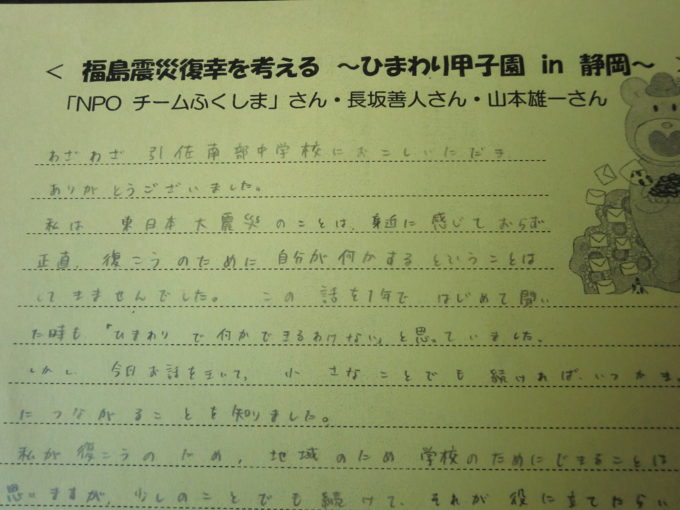 ＜ 福島震災復幸を考える ～ひまわり甲子園 in 静岡～
「NPO チームふくしま」さん・長坂善人さん・山本雄一さん
わざわざ 引佐南部中学校におこしいただき
ありがとうございました。
私は 東日本大震災のことは、身近に感じておらず
正直、復こうのために自分が何かするということは
してきませんでした。 この話を1年で はじめて聞い
た時も「ひまわりで何かできるわけない」と思っていました。
しかし 今日お話をきいて、小さなことでも続ければ、いつか
につながることを知りました。
私が復こうのため、地域のため 学校のためにできることは
思いますが、少しのことでも続けて、それが役に立てたらい